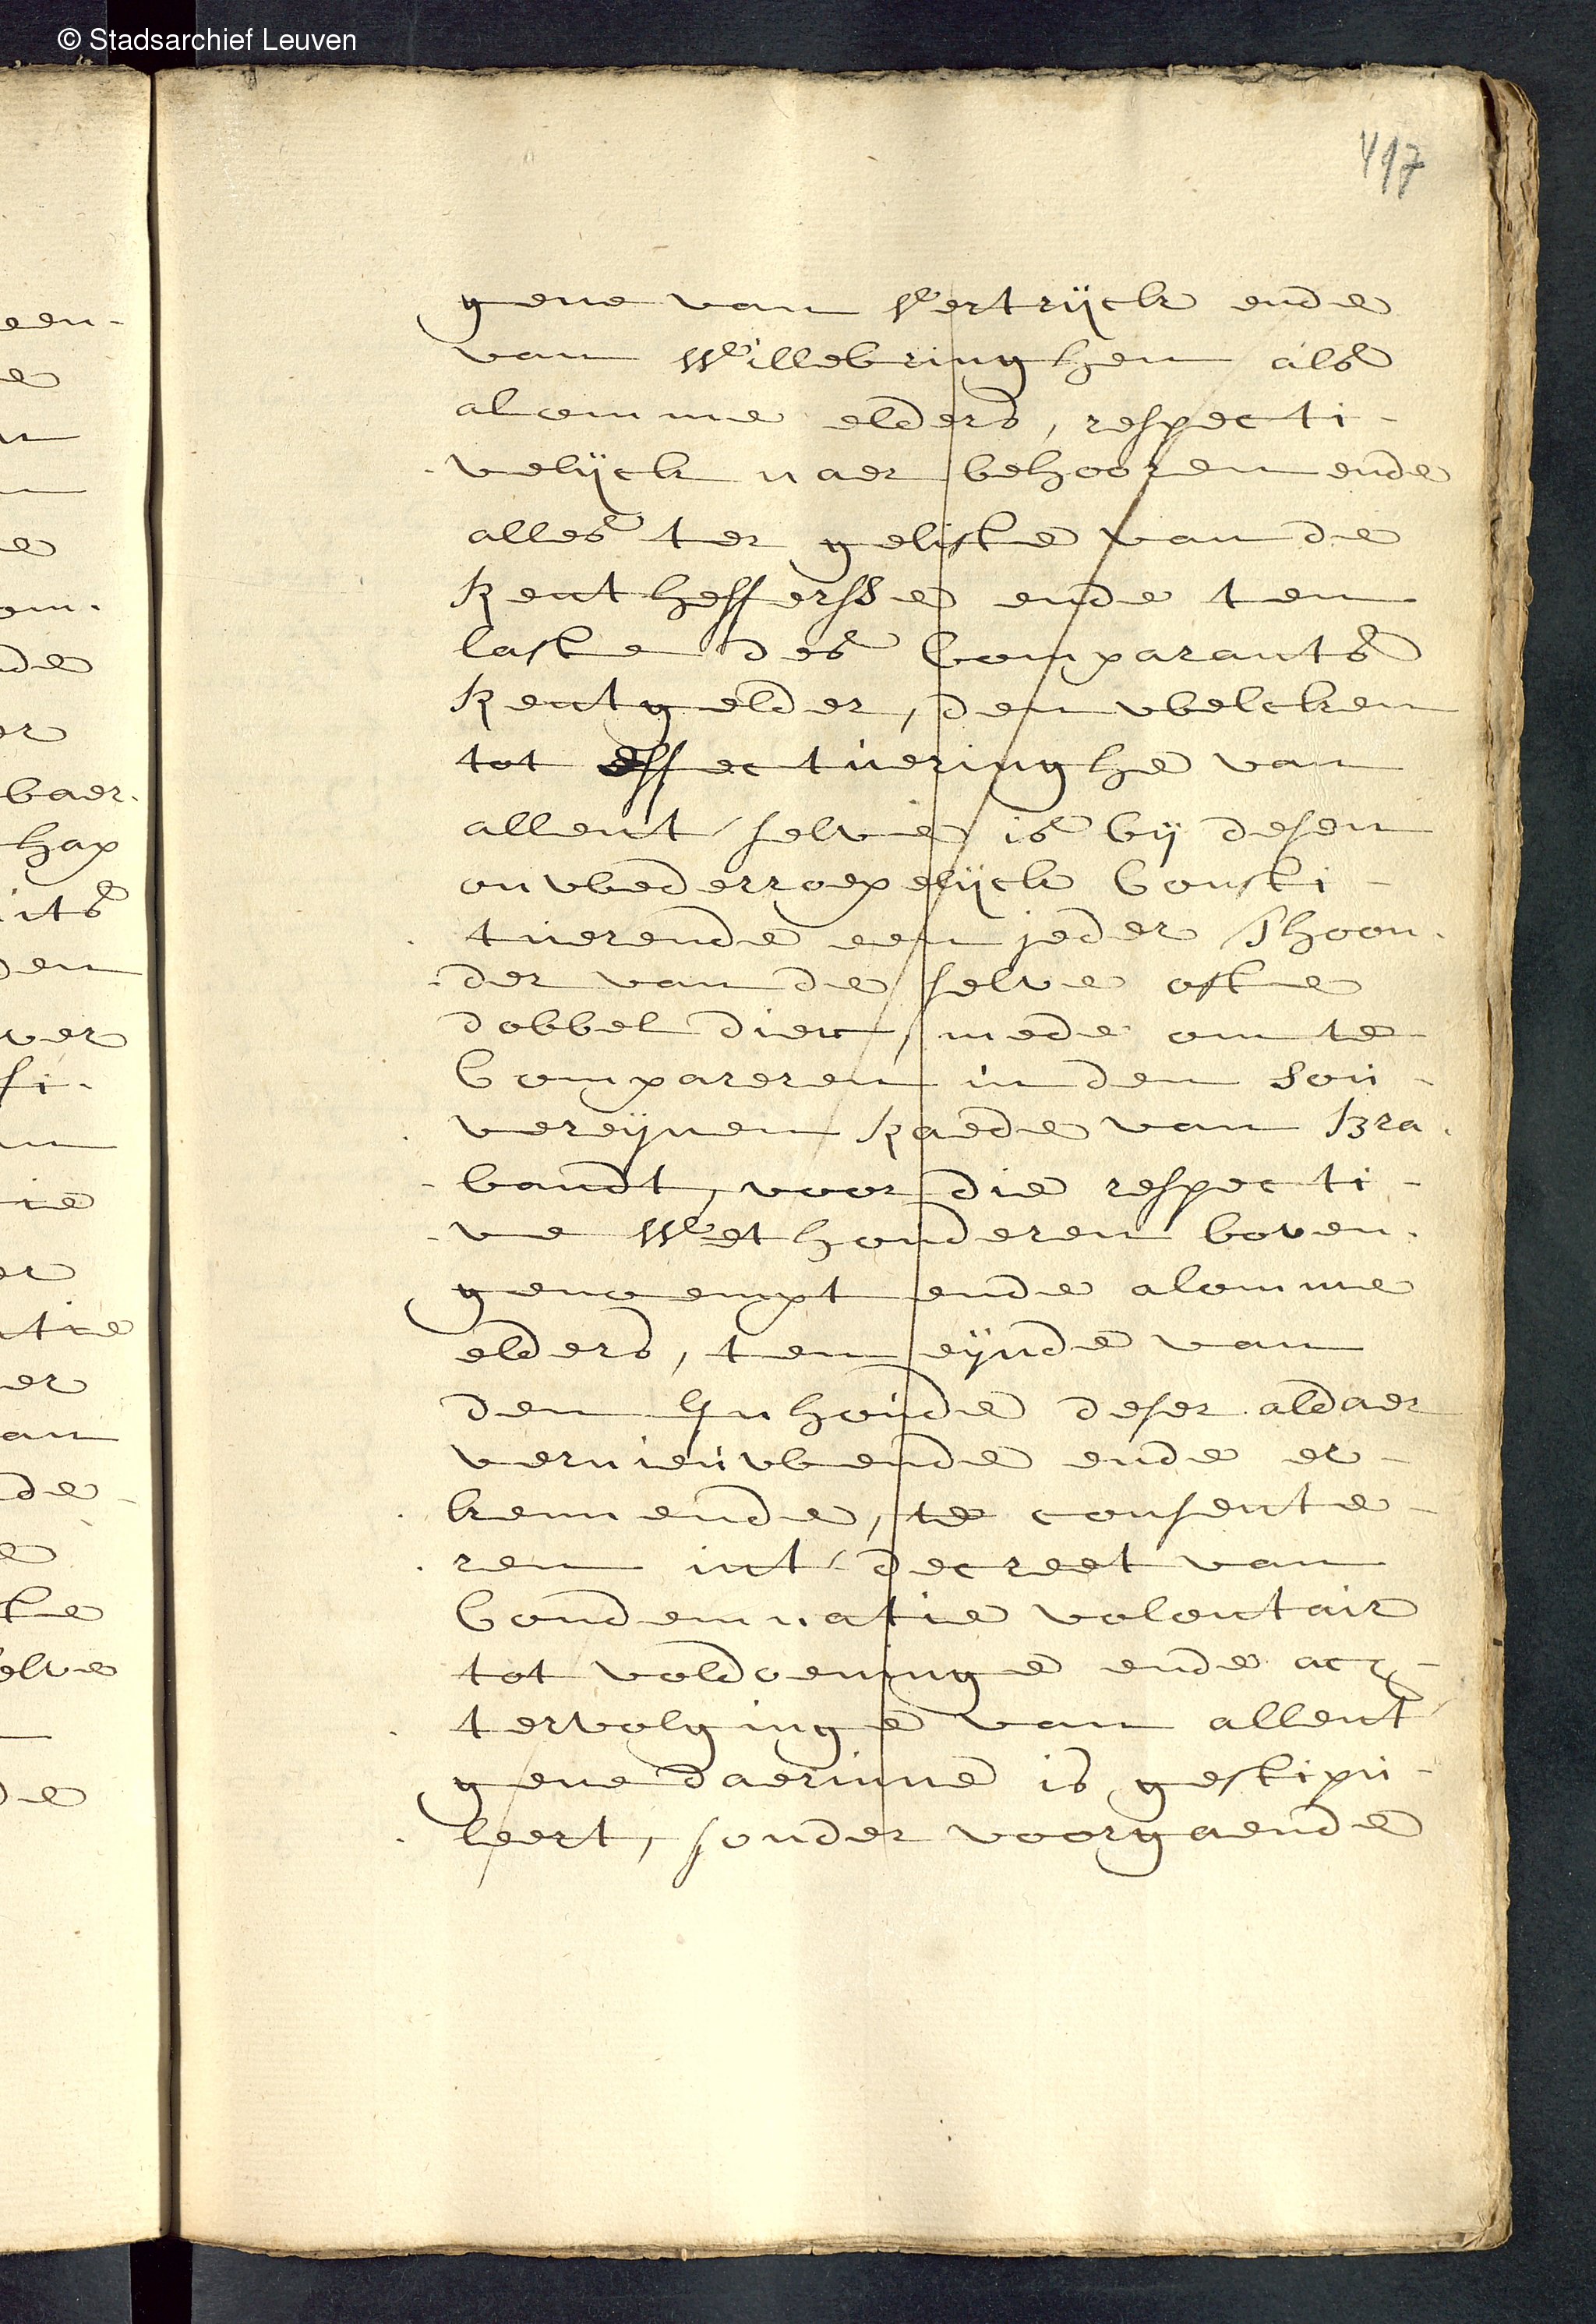 © Stadsarchief Leuven
417
gene van Vertrijck ende
van Willebringhen als
alomme elders, respecti-
velijck naer behooren ende
alles ter geliefte van de
Rentheffersse ende ten
laste des Comparants
Rentgelder, den welcken
tot effectueringhe van
allent selve is bij desen
onwederroepelijck Consti-
tuerende een jeder Thoon-
der van de selve ofte
dobbel dier, mede om te
Compareren in den Sou-
vereijnen Raede van Bra-
bandt, voor die respecti-
ve Wethouderen boven
genoempt ende alomme
elders, ten eijnde van
den Inhoude deser aldaer
vernieuwende ende er-
kennende, te consente-
ren int decreet van
Condemnatie volontair
tot voldoeninge ende ach-
tervolginge van allent
gene daerinne is gestipu-
leert, sonder voorgaende
een-
e
n
e
om-
de
er
baer-
hap
its
den
ver
si-
ie
er
tie
er
an
de-
e
te
elve
de